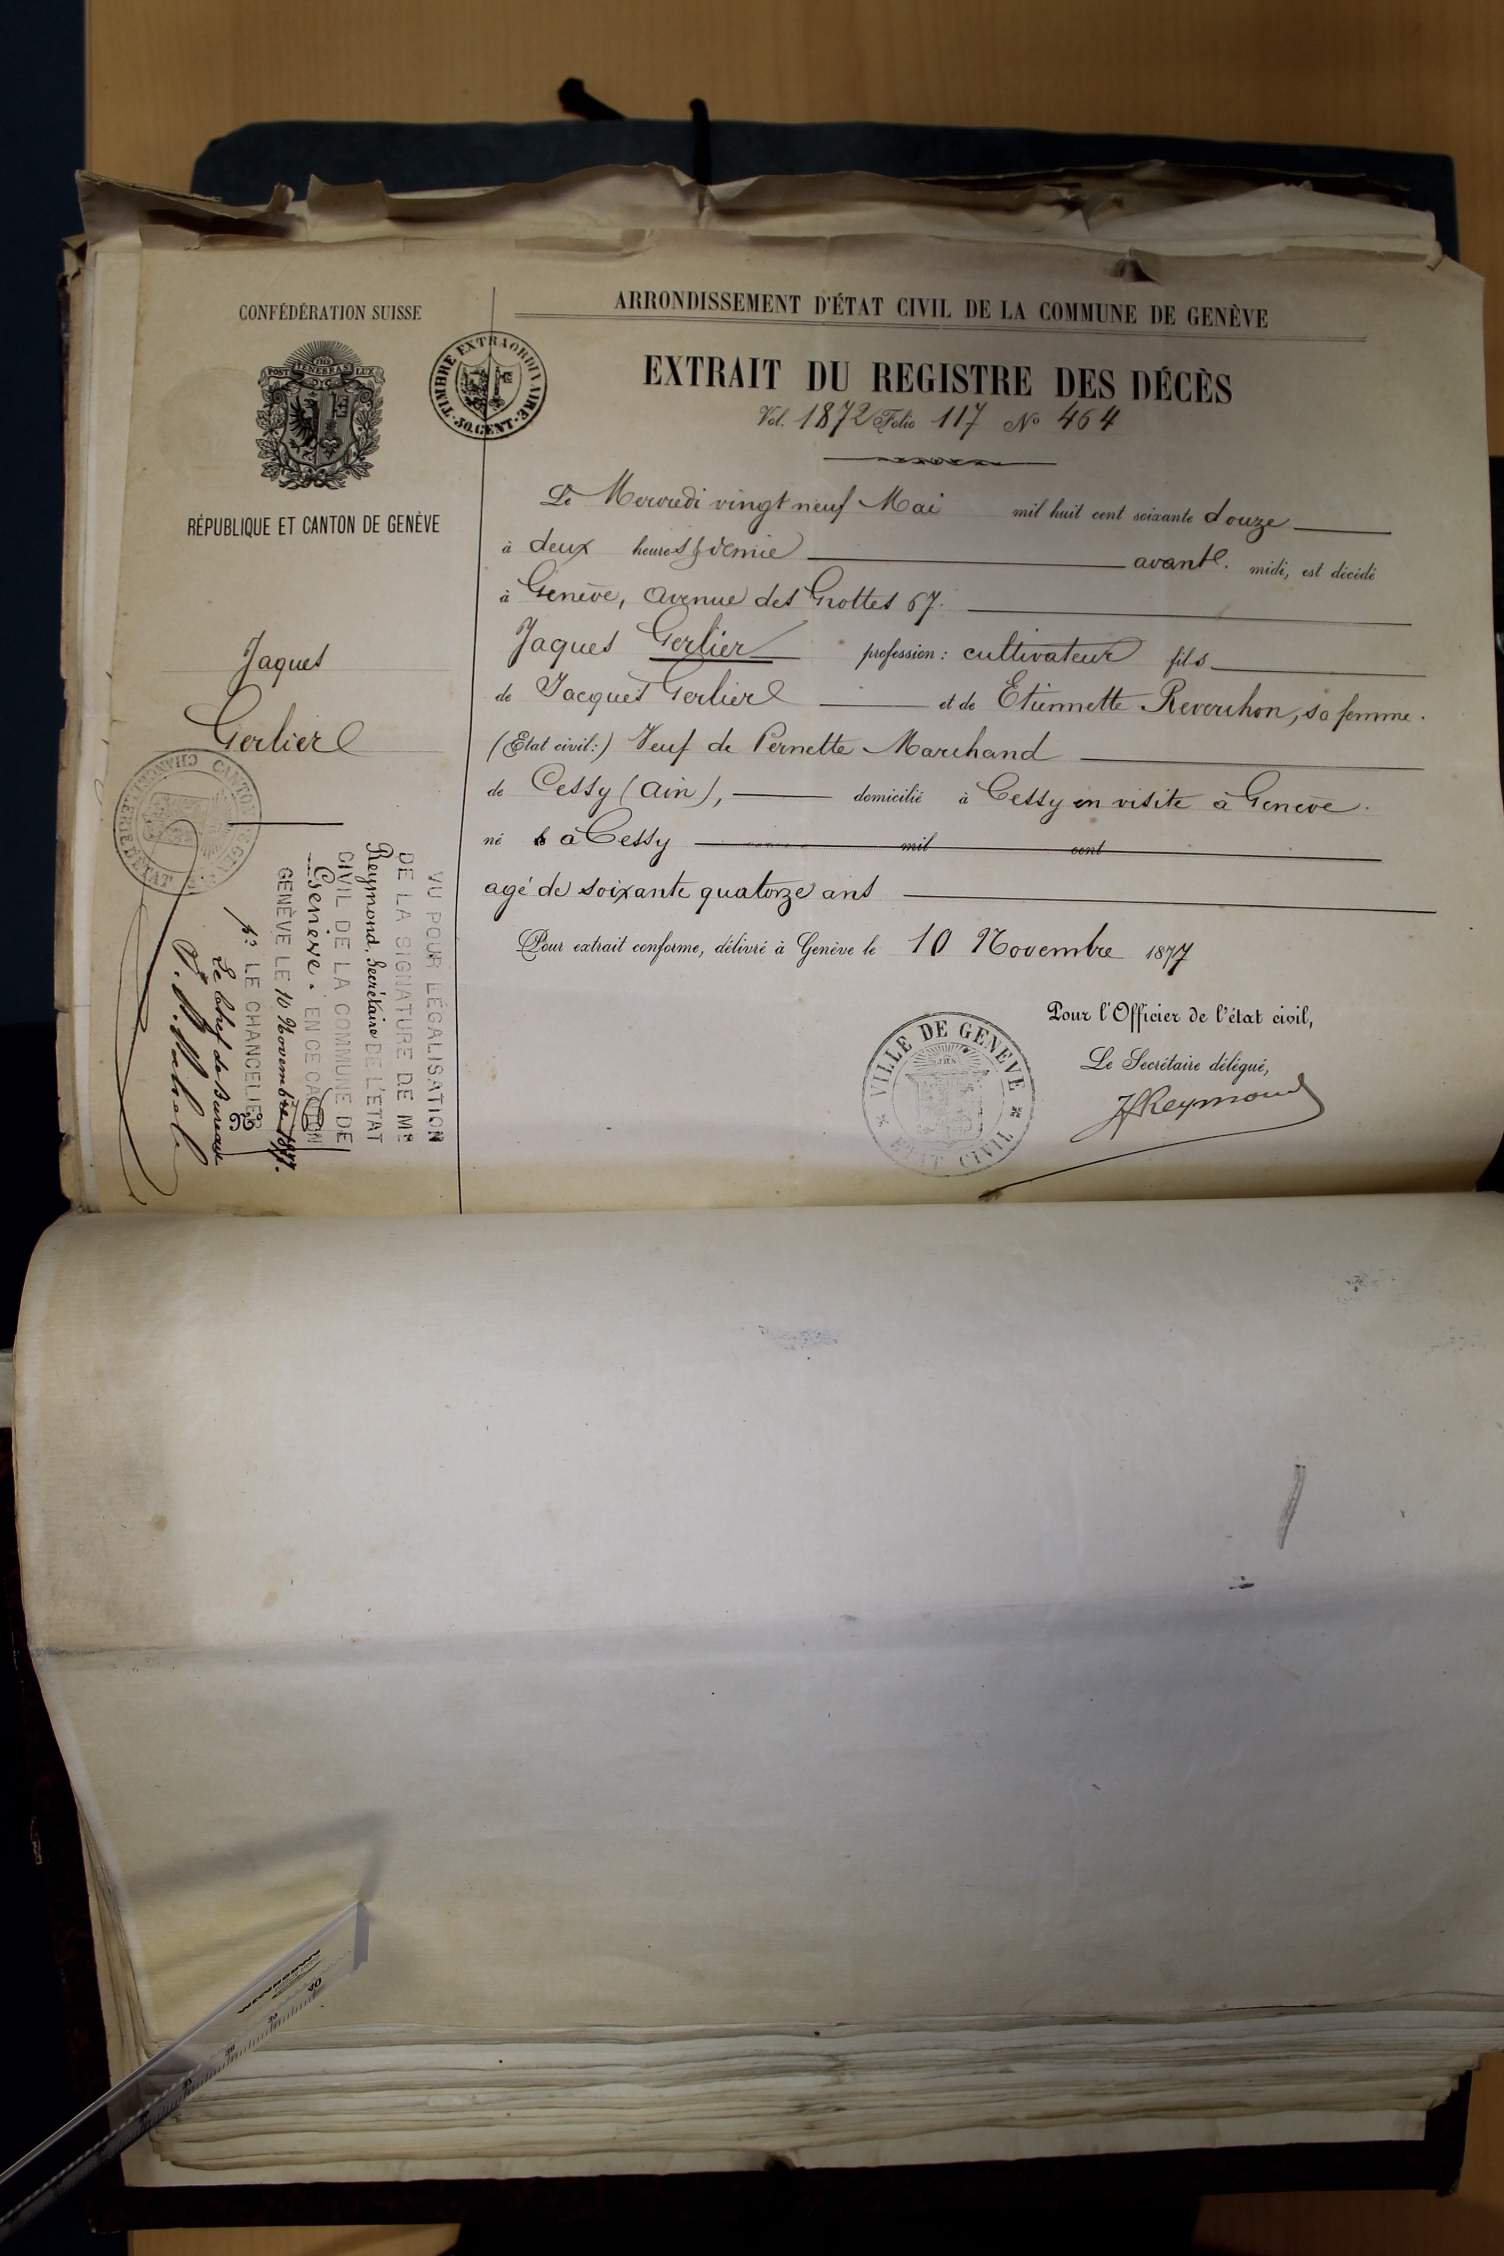 CONFÉDÉRATION SUISSE
POST TENEBRAS LUX
RÉPUBLIQUE ET CANTON DE GENÈVE
Jaques
Gerlier
CHANCELLERIE D'ÉTAT
VU POUR LÉGALISATION
DE LA SIGNATURE DE MR
Reymond, Secrétaire DE L'ETAT
CIVIL DE LA COMMUNE DE
Genève. EN CE CANTON
GENÈVE LE 10 Novembre 1877.
pr. LE CHANCELIER
Le Chef de Bureau
TIMBRE EXTRAORDINAIRE
30. CENT.
ARRONDISSEMENT D'ÉTAT CIVIL DE LA COMMUNE DE GENÈVE
EXTRAIT DU REGISTRE DES DÉCÈS
Vol. 1872 Folio 117 No 464
Le Mercredi vingt neuf Mai mil huit cent soixante douze
à deux heures & demie avant. midi, est décédé
à Genève, Avenue des Grottes 67.
Jaques Gerlier profession: cultivateur fils
de Jacques Gerlier et de Etiennette Reverchon, sa femme.
(Etat civil:) Veuf de Pernette Marchand
de Cessy (Ain), domicilié à Cessy en visite à Genève.
né à Cessy mil cent
agé de soixante quatorze ans
Pour extrait conforme, délivré à Genève le 10 Novembre 1877
Pour l'Officier de l'état civil,
Le Secrétaire délégué,
Reymond
VILLE DE GENÈVE
ETAT CIVIL